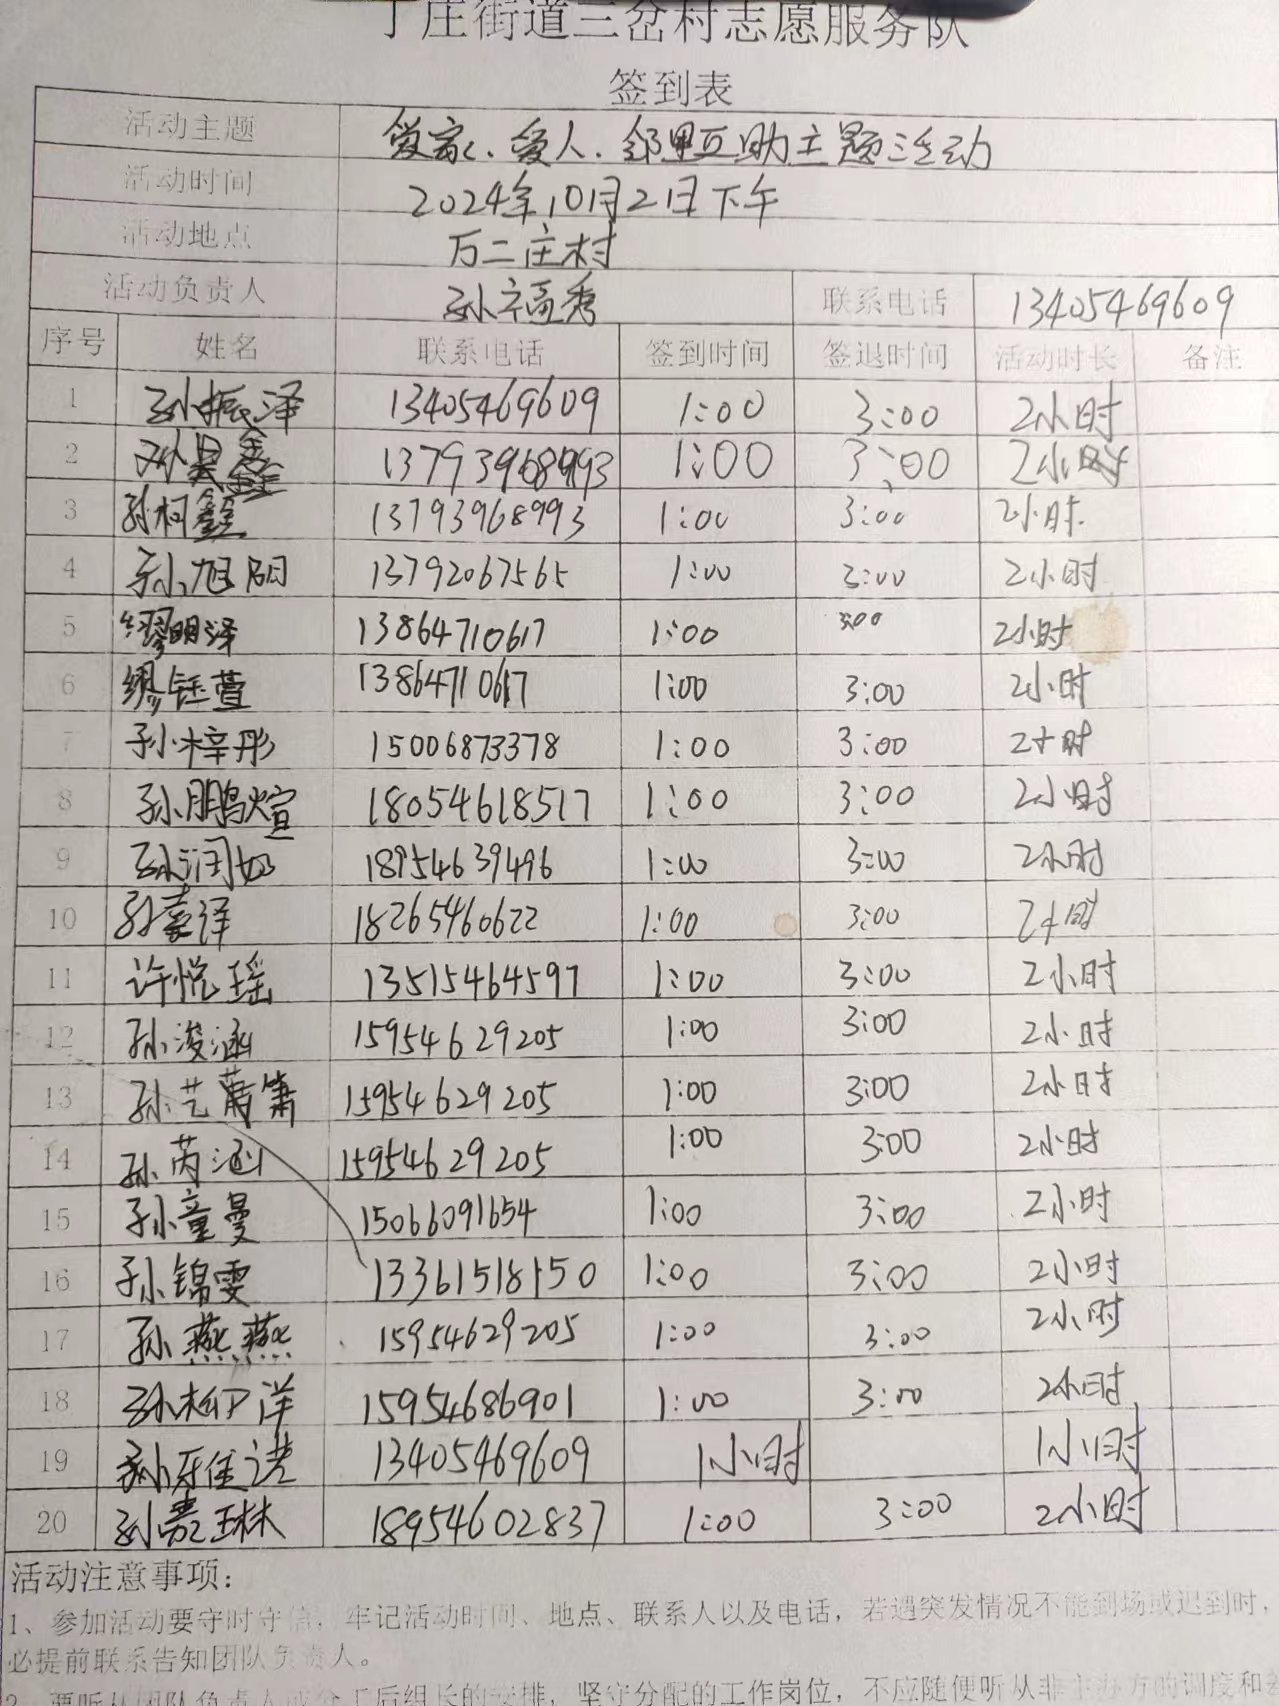 丁庄街道三岔村志愿服务队
签到表
活动主题 爱家、爱人、邻里互助主题活动
活动时间 2024年10月2日下午
活动地点 万二庄村
活动负责人 孙福秀 联系电话 13405469609
序号 姓名 联系电话 签到时间 签退时间 活动时长 备注
1 孙振泽 13405469609 1:00 3:00 2小时
2 孙昊鑫 1:00 3:00 2小时
3 孙柯鑫 13793968993 1:00 3:00 2小时
4 孙旭阳 13792067565 1:00 3:00 2小时
5 缪明泽 13864710617 1:00 3:00 2小时
6 缪钰萱 13864710617 1:00 3:00 2小时
7 孙梓彤 15006873378 1:00 3:00 2小时
8 孙鹏煊 18054618517 1:00 3:00 2小时
9 孙润如 18954639496 1:00 3:00 2小时
10 孙嘉泽 18265460622 1:00 3:00 2小时
11 许悦瑶 13515464597 1:00 3:00 2小时
12 孙浚涵 15954629205 1:00 3:00 2小时
13 孙艺萧箫 15954629205 1:00 3:00 2小时
14 孙芮涵 15954629205 1:00 3:00 2小时
15 孙童曼 15066091654 1:00 3:00 2小时
16 孙锦雯 13361518150 1:00 3:00 2小时
17 孙燕燕 15954629205 1:00 3:00 2小时
18 孙柳洋 15954686901 1:00 3:00 2小时
19 13405469609 1小时 1小时
20 18954602837 1:00 3:00 2小时
活动注意事项：
1、参加活动要守时守信，牢记活动时间、地点、联系人以及电话，若遇突发情况不能到场或迟到时，
必提前联系告知团队负责人。
2、要听从团队负责人或分工后组长的安排，坚守分配的工作岗位，不应随便听从非主办方的调度和